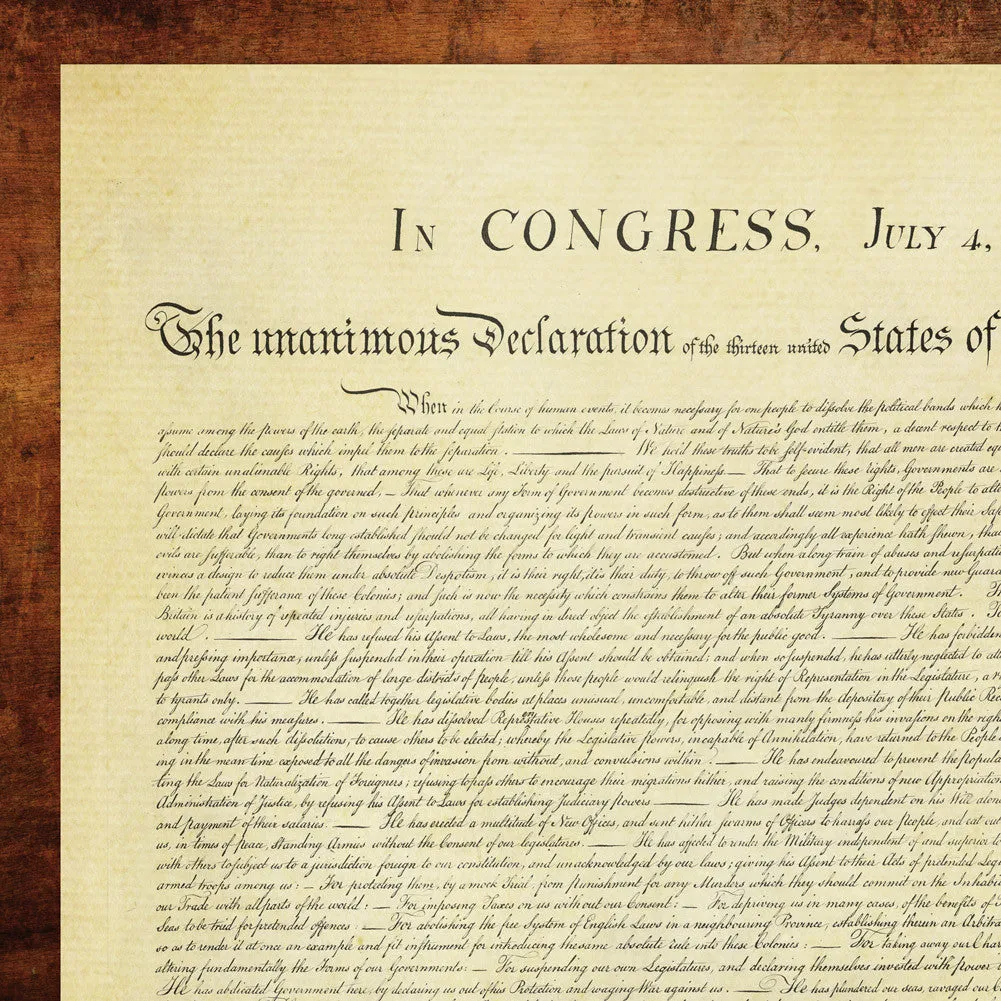 In CONGRESS, July 4,
The unanimous Declaration of the thirteen united States of
When in the Course of human events, it becomes necessary for one people to dissolve the political bands which
assume among the powers of the earth, the separate and equal station to which the Laws of Nature and of Nature's God entitle them, a decent respect to
should declare the causes which impel them to the separation. ——— We hold these truths to be self-evident, that all men are created
with certain unalienable Rights, that among these are Life, Liberty and the pursuit of Happiness.— That to secure these rights, Governments are
powers from the consent of the governed, — That whenever any Form of Government becomes destructive of these ends, it is the Right of the People to
Government, laying its foundation on such principles and organizing its powers in such form, as to them shall seem most likely to effect their
will dictate that Governments long established should not be changed for light and transient causes; and accordingly all experience hath shewn,
evils are sufferable, than to right themselves by abolishing the forms to which they are accustomed. But when a long train of abuses and
evinces a design to reduce them under absolute Despotism, it is their right, it is their duty, to throw off such Government, and to provide new
been the patient sufferance of these Colonies; and such is now the necessity which constrains them to alter their former Systems of Government.
Britain is a history of repeated injuries and usurpations, all having in direct object the establishment of an absolute Tyranny over these States.
world. ——— He has refused his Assent to Laws, the most wholesome and necessary for the public good. ——— He has forbidden
and pressing importance, unless suspended in their operation till his Assent should be obtained; and when so suspended, he has utterly neglected to
pass other Laws for the accommodation of large districts of people, unless those people would relinquish the right of Representation in the Legislature, a
to tyrants only. ——— He has called together legislative bodies at places unusual, uncomfortable, and distant from the depository of their Public
compliance with his measures. ——— He has dissolved Representative Houses repeatedly, for opposing with manly firmness his invasions on the
along time, after such dissolutions, to cause others to be elected; whereby the Legislative powers, incapable of Annihilation, have returned to the People
ing in the mean time exposed to all the dangers of invasion from without, and convulsions within. ——— He has endeavoured to prevent the
ting the Laws for Naturalization of Foreigners; refusing to pass others to encourage their migrations hither, and raising the conditions of new
Administration of Justice, by refusing his Assent to Laws for establishing Judiciary powers ——— He has made Judges dependent on his Will
and payment of their salaries. ——— He has erected a multitude of New Offices, and sent hither swarms of Officers to harrass our People, and eat out
us, in times of peace, Standing Armies without the Consent of our legislatures. ——— He has affected to render the Military independent of and superior
with others to subject us to a jurisdiction foreign to our constitution, and unacknowledged by our laws; giving his Assent to their Acts of pretended
armed troops among us: — For protecting them, by a mock Trial, from punishment for any Murders which they should commit on the
our Trade with all parts of the world: — For imposing Taxes on us without our Consent: — For depriving us in many cases, of the benefits of
Seas to be tried for pretended offences: — For abolishing the free System of English Laws in a neighbouring Province, establishing therein an
so as to render it at once an example and fit instrument for introducing the same absolute rule into these Colonies: — For taking away our
altering fundamentally the Forms of our Governments: — For suspending our own Legislatures, and declaring themselves invested with power
He has abdicated Government here, by declaring us out of his Protection and waging War against us. ——— He has plundered our seas, ravaged our